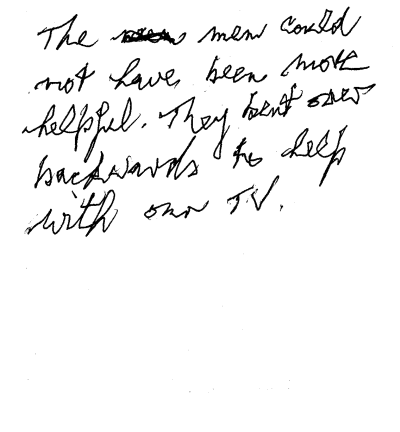 The men could
not have been more
helpful. They bent over
backwards to help
with our TV.